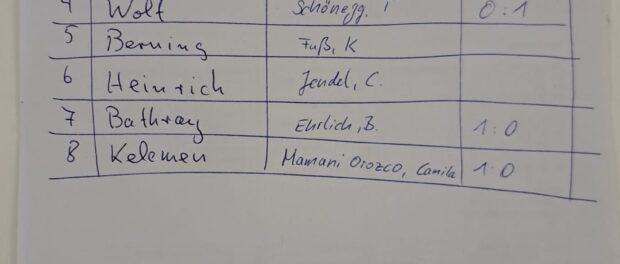 4 Wolf Schönegg. I 0:1
5 Berning Fuß, K
6 Heinrich Jendel, C.
7 Bathray Ehrlich, B. 1:0
8 Kelemen Mamani Orozco, Camila 1:0